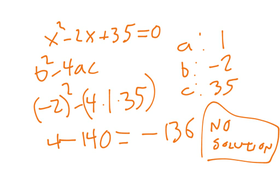 x² - 2x + 35 = 0
b² - 4ac
(-2)² - (4·1·35)
4 - 140 = -136
a: 1
b: -2
c: 35
NO
SOLUTION